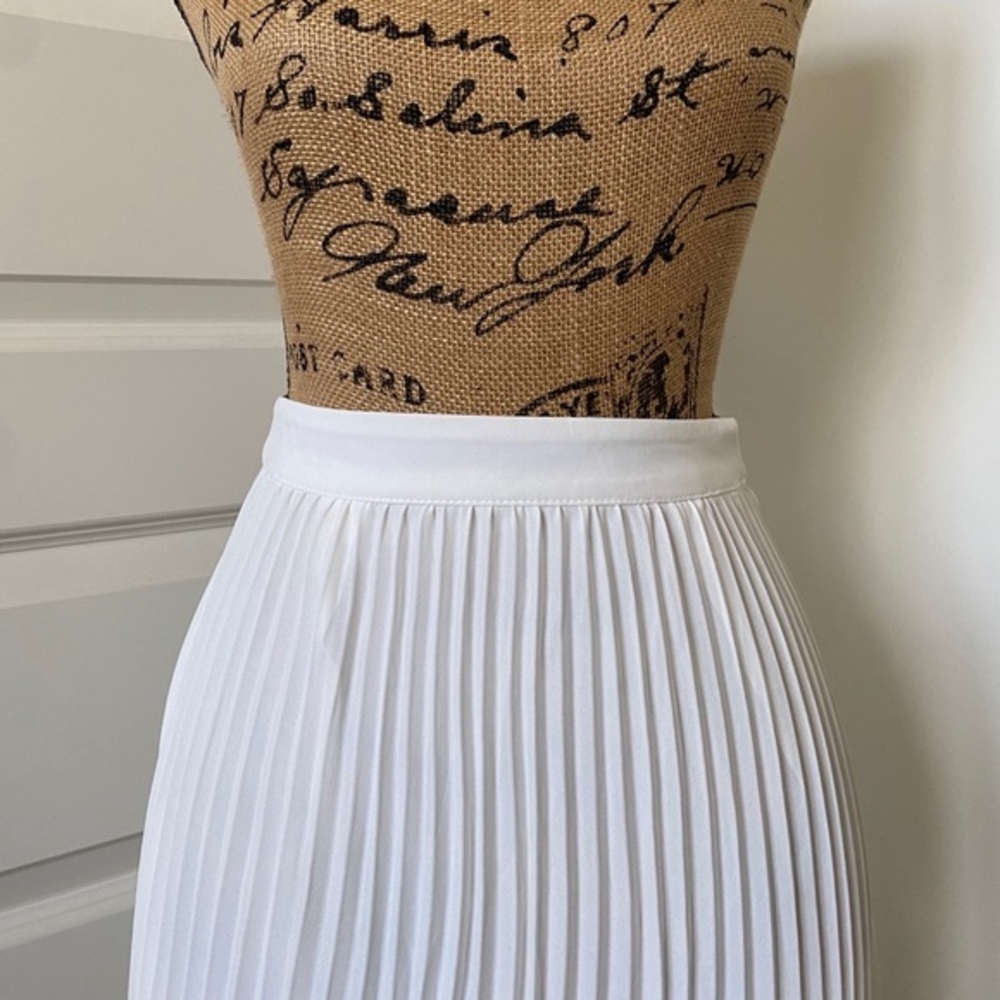 Harris 807
So. Salina St
Syracuse
New York
POST CARD